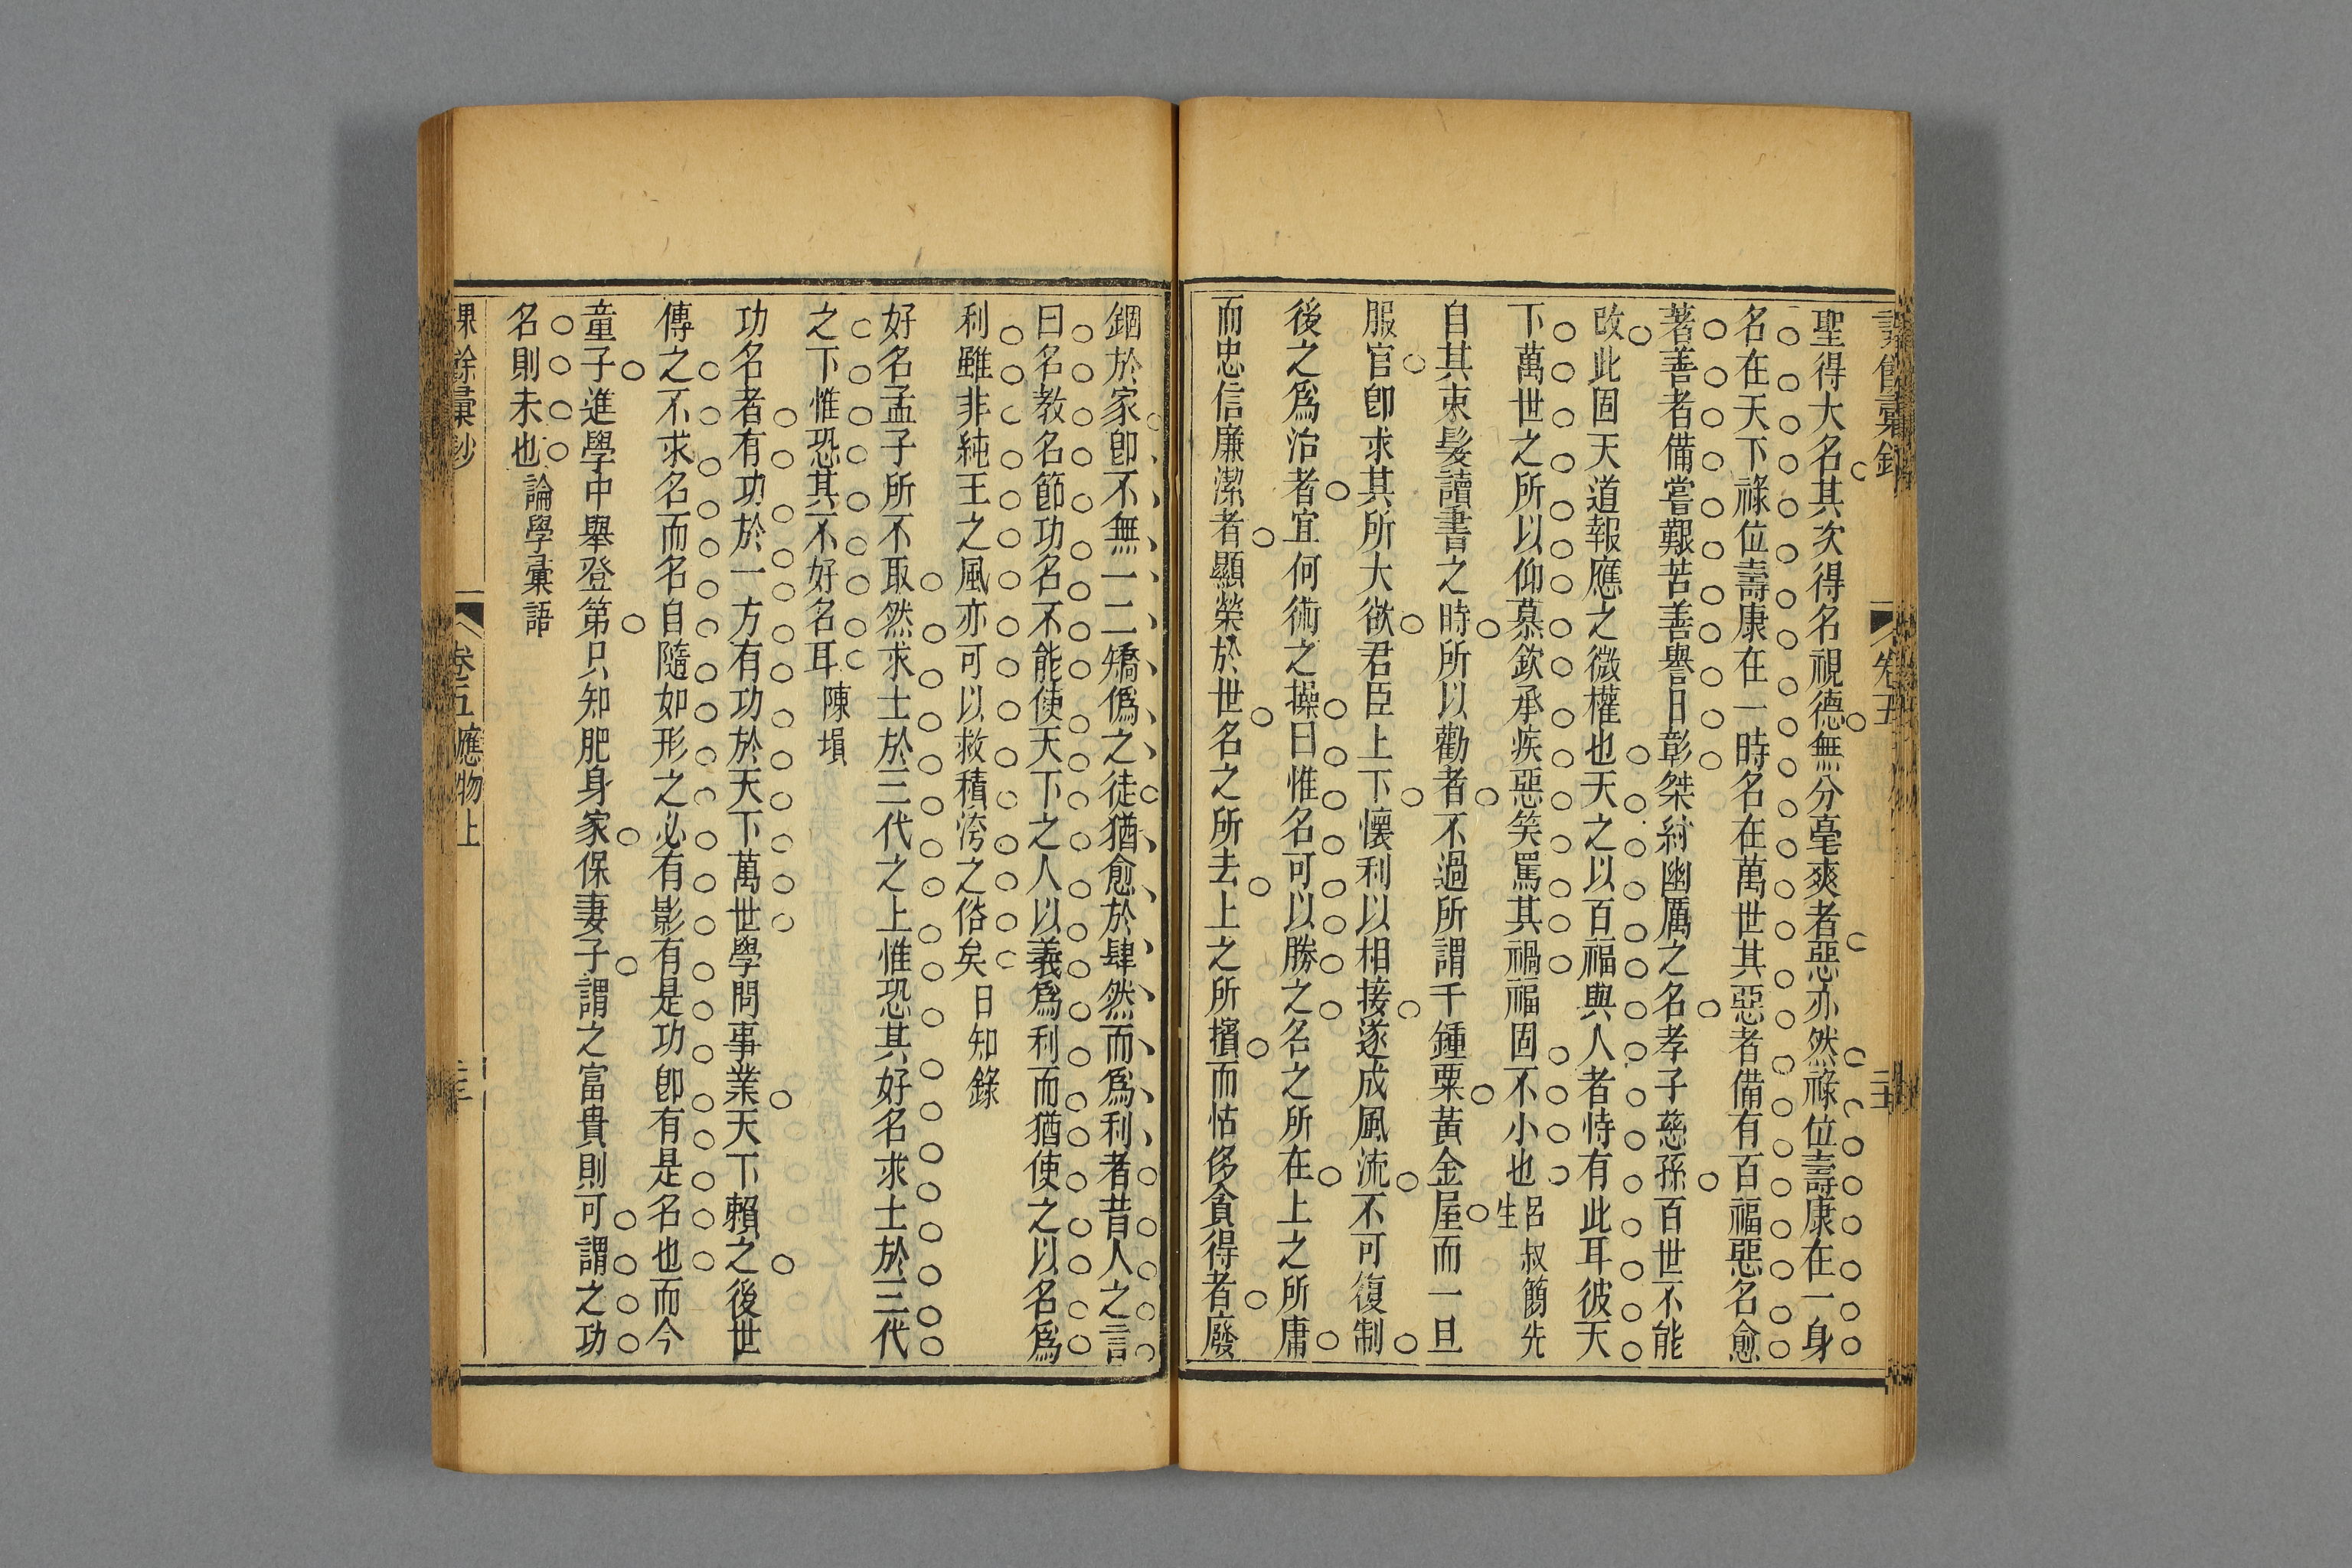 卷五
聖得大名其次得名視德無分毫爽者惡亦然祿位壽康在一身
名在天下祿位壽康在一時名在萬世其惡者備有百福惡名愈
著善者備嘗艱苦善譽日彰桀紂幽厲之名孝子慈孫百世不能
改此固天道報應之微權也天之以百福與人者恃有此耳彼天
下萬世之所以仰慕欽承疾惡笑罵其禍福固不小也呂叔簡先
生
自其束髮讀書之時所以勸者不過所謂千鍾粟黃金屋而一旦
服官卽求其所大欲君臣上下懷利以相接遂成風流不可復制
後之爲治者宜何術之操曰惟名可以勝之名之所在上之所庸
而忠信廉潔者顯榮於世名之所去上之所擯而怙侈貪得者廢
錮於家卽不無一二矯僞之徒猶愈於肆然而爲利者昔人之言
曰名教名節功名不能使天下之人以義爲利而猶使之以名爲
利雖非純王之風亦可以救積洿之俗矣日知錄
好名孟子所不取然求士於三代之上惟恐其好名求士於三代
之下惟恐其不好名耳陳塤
功名者有功於一方有功於天下萬世學問事業天下賴之後世
傳之不求名而名自隨如形之必有影有是功卽有是名也而今
童子進學中舉登第只知肥身家保妻子謂之富貴則可謂之功
名則未也論學彙語
課餘彙鈔 卷五應物上